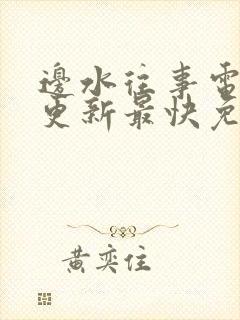 邊水往事電
更新最快免
黄奕住